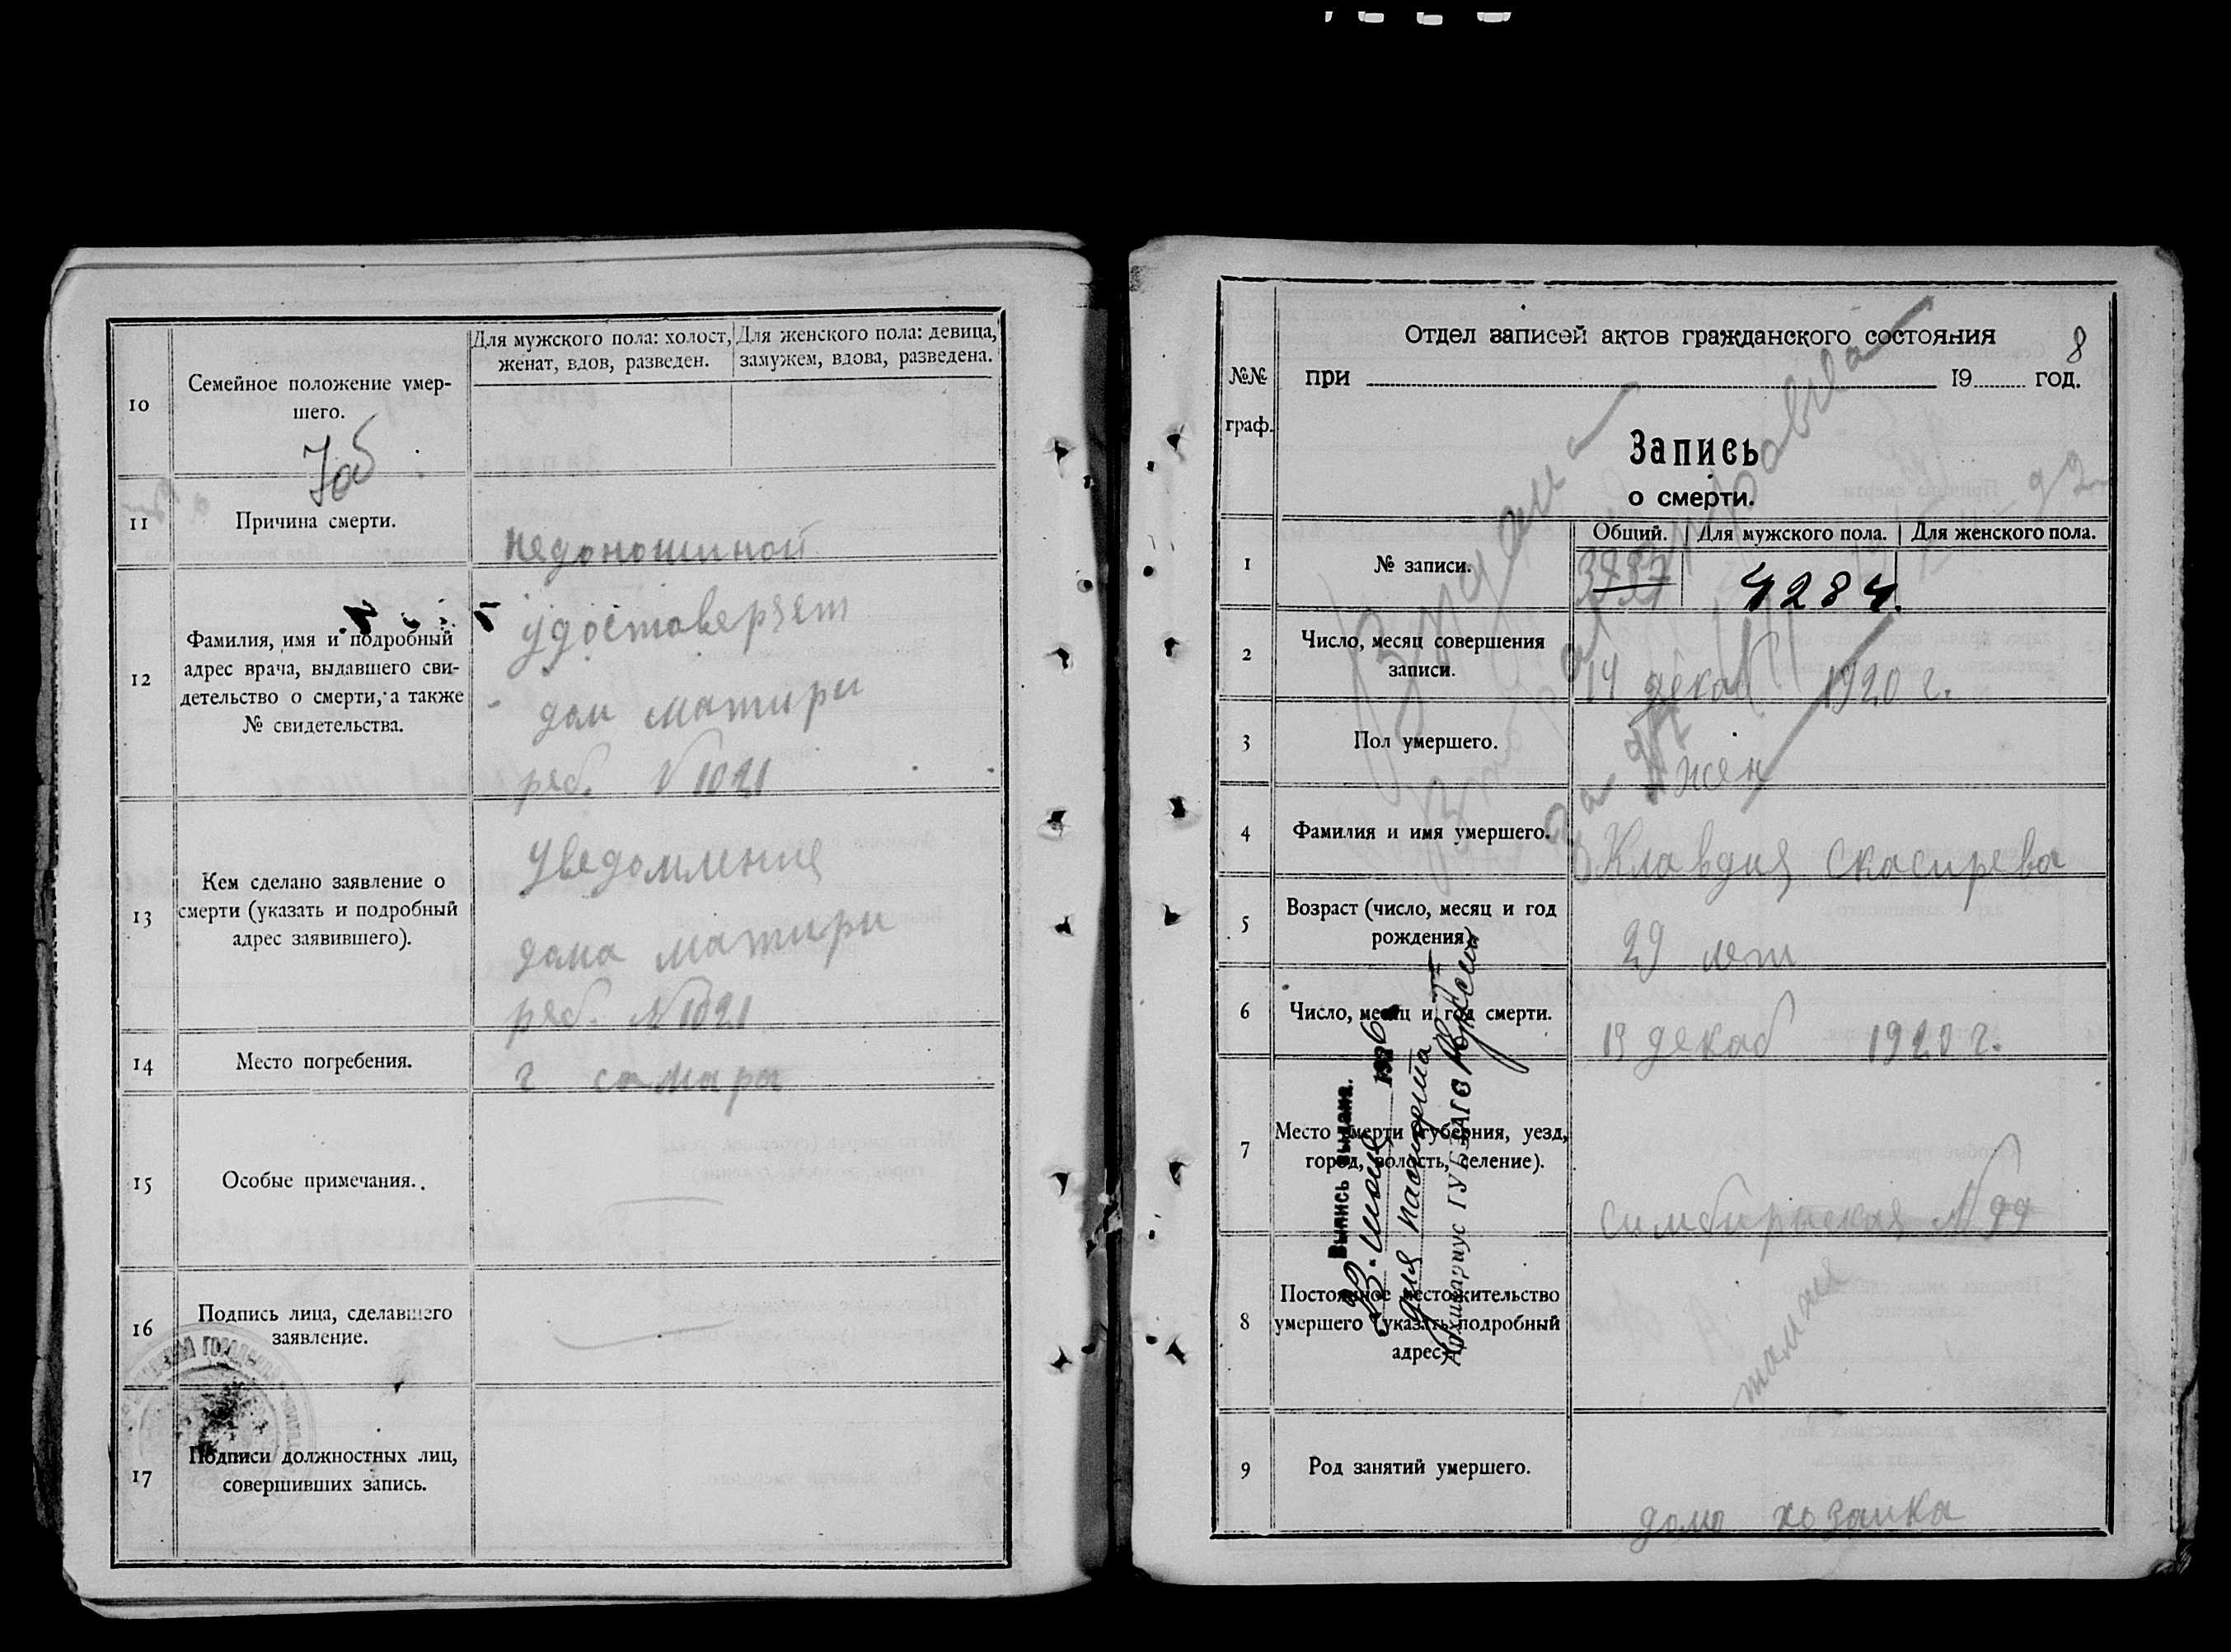 10
Семейное положение умер-
шего.
Для мужского пола: холост,
женат, вдов, разведен.
Для женского пола: девица,
замужем, вдова, разведена.
11
Причина смерти.
недоношиной
12
Фамилия, имя и подробный
адрес врача, выдавшего сви-
детельство о смерти, а также
№ свидетельства.
удостоверяет
дом матири
реб. N 1021
13
Кем сделано заявление о
смерти (указать и подробный
адрес заявившего).
Уведомление
дома матири
реб. N 1021
14
Место погребения.
г самара
15
Особые примечания.
16
Подпись лица, сделавшего
заявление.
17
Подписи должностных лиц,
совершивших запись.
8
№№
граф.
Отдел записей актов гражданского состояния
при 19 год.
Запись
о смерти.
1
№ записи.
Общий.
Для мужского пола.
Для женского пола.
4284.
2
Число, месяц совершения
записи.
14 декаб 1920 г.
3
Пол умершего.
жен
4
Фамилия и имя умершего.
Клавдия Скасирева
5
Возраст (число, месяц и год
рождения)
29 лет
6
Число, месяц и год смерти.
13 декаб 1920 г.
7
Место смерти (губерния, уезд,
город, волость, селение).
Симбирская N 99
8
Постоянное местожительство
умершего (указать подробный
адрес).
тамже
9
Род занятий умершего.
домо хозаика
Выпись выдана.
23. июня 1926
для паспорта
Архивариус ГУБЗАГС